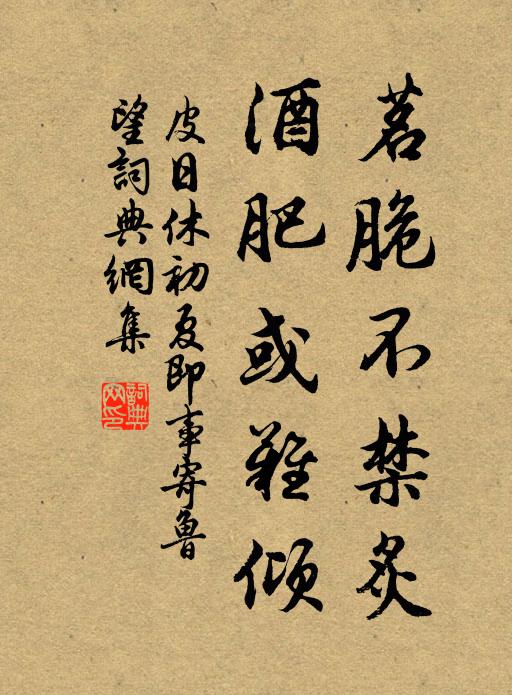 茗脆不禁炙
酒肥或難傾
皮日休初夏即事寄魯
望詞典網集
詞典網印